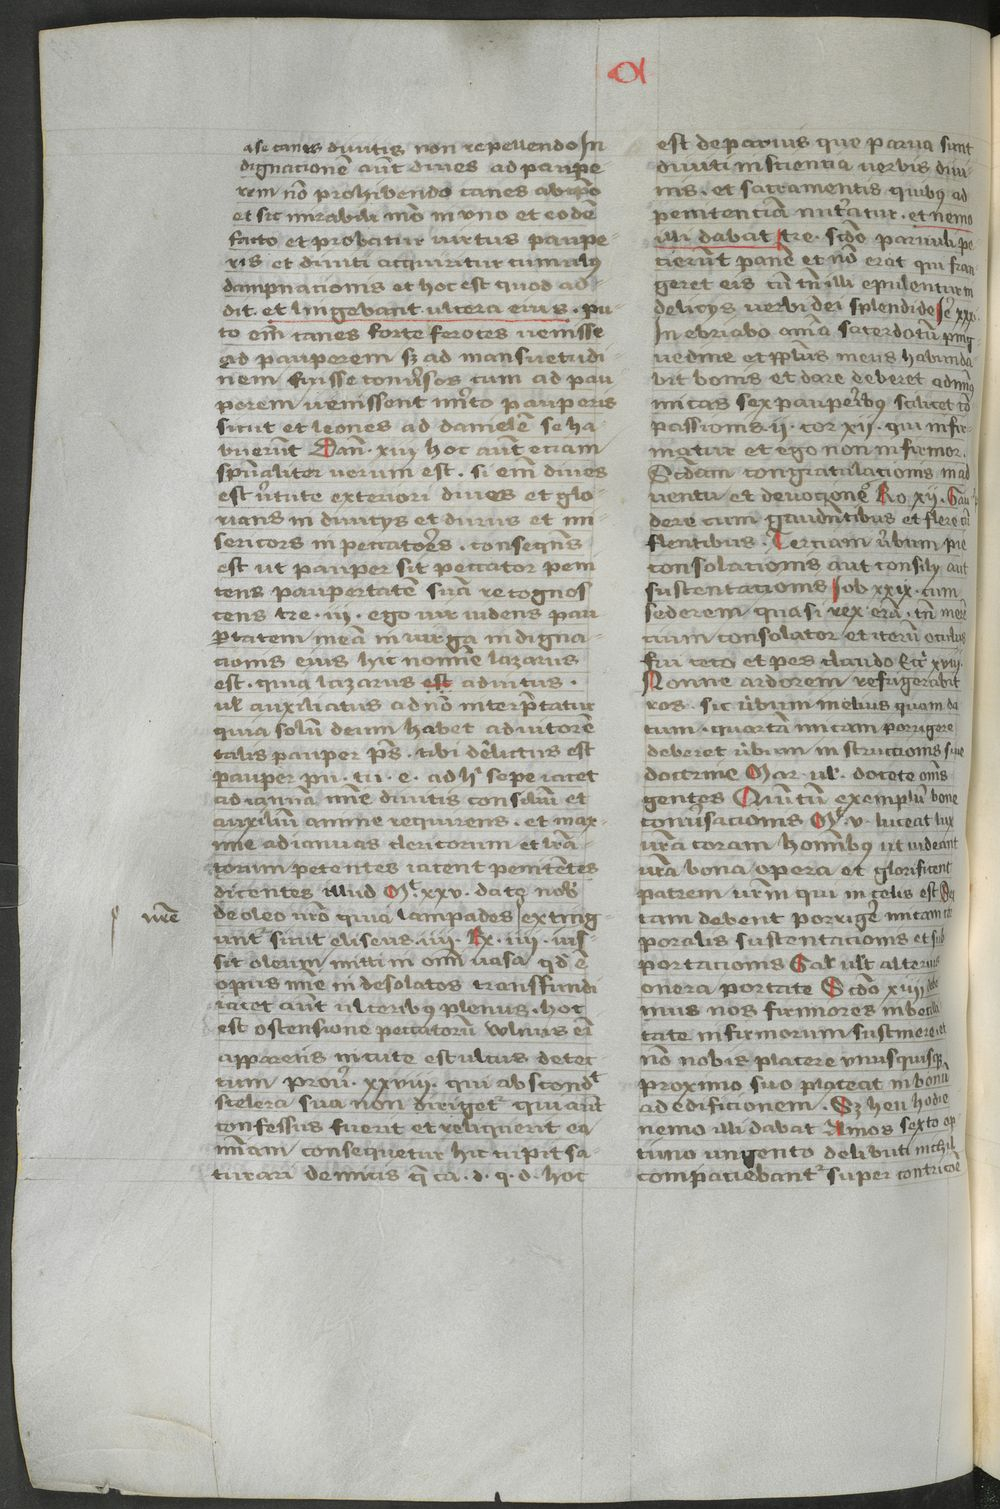 a se canes divitis non repellendo In
dignacionē aūt dives ad paupe
rem nō prohibendo canes ab ipō
et sic mirabili mō in uno et eodē
facto et probatur virtus paupe-
ris et diviti acquiritur cumulꝰ
dampnationis et hoc est quod ad-
dit. et lingebant ulcera eius. pu-
to em̄ canes forte feroces venisse
ad pauperem sꝫ ad mansuetudi-
nem fuisse conv̓sos cum ad pau
perem venissent mīto pauperis
sicut et leones ad danielē se ha-
buerūt Dan̄. xiiij hoc aūt etiam
spūaliter verum est. si em̄ dives
est v̓tute exteriori dives et glo-
rians in divicijs et durus et im-
sericors in peccatores. conseqn̄s
est ut pauper sit peccator peni
tens paupertatē suā recognos
cens tre. iij. ego vir videns pau
ꝑtatem meā in virga indigna-
cionis eius hic nomīe lazarus
est. quia lazarus est adiutus.
ul̓ auxiliatus ad nō interp̄tatur
quia solū deum habet adiutorē
talis pauper p̄s. tibi dēlictus est
pauper pn̄. tu. e. ad hͥ sepe iacet
ad iannā mīe divitis consiliū et
auxiliū anime requirens. et max-
ime ad ianuas clericorum et lr̄a-
torum petentes iacent penitētes
dicentes illud Mͭ xxv. date nobͥ
de oleo vrō quia lampades exting-
vre
untͬ sicut eliseus. iiij. Rx. iiij. ius-
sit oleum mitti in om̄i vasa qd̓ ē
opus mīe in desolatos transfundi
iacet aūt ulceribꝰ plenus. hoc
est ostensione peccatorū Volnus em̄
apparens in cute est ulcus detec-
tum prov̓. xxviii. qui abscondͭ
scelera sua non dirigetͬ qui aūt
confessus fuerit et reliquerit ea
mīam consequetur hic cupit sa-
turari de micis q̄ ca. d. q. d. hoc
est de parvis que parva sunt
diviti in scientia verbis divi
nis. et sacramentis quibꝰ ad
penitenciā nut̓atur. et nemo
illi dabat tre. scd̄o parvuli pe
tierūt panē et nō erat qui fran
geret eis cū tn̄ illi epulentur in
delicijs verbi dei splendide Ie̓ xxx.
In ebriabo aīa sacerdotū ping
uedine et pp̄lus meus habunda
bit bonis et dare deberet ad mīꝰ
micas sex pauperibꝰ scilicet cō
passionis. ij. cor xij. quis infir-
matur et ego non infirmor.
Scd̄am congratulacionis in ad
uentu et devocione Ro xij. Gau
dere cum gaudentibus et flere cū
flentibus. Terciam v̓bum pie
consolationis aut consilij aut
sustentacionis Iob xxix. cum
sederem quasi rex erā. tn̄ mere
cium consolator et iterū oculus
fui ceco et pes claudo Ecc̄ xviij.
Nonne ardorem refrigerabit
ros. sic v̓bum melius quam da
tum. quartā micam porrigere
deberet v̓bum instructionis sive
doctrine Mar. ul̓. docete om̄s
gentes Quintū exemplū bone
conv̓sacionis Mͭ. v. luceat lux
vr̄a coram hominibꝰ ut videant
vr̄a bona opera et glorificent
patrem vr̄m qui in celis est Sex
tam debent porriger̄ micam cor
poralis sustentacionis et sub
portacionis Gal̓ ul̓t alterius
onera portate Scd̄o xvij debe
mus nos firmiores inbecilli
tate infirmorum sustinere. et
nō nobis placere unusquisqꝫ
proximo suo placeat in bonū
ad edificionem. Sꝫ heu hodie
nemo illi dabat Amos sexto op
timo ungento delibuti nichil
compaciebantͬ super contricōē